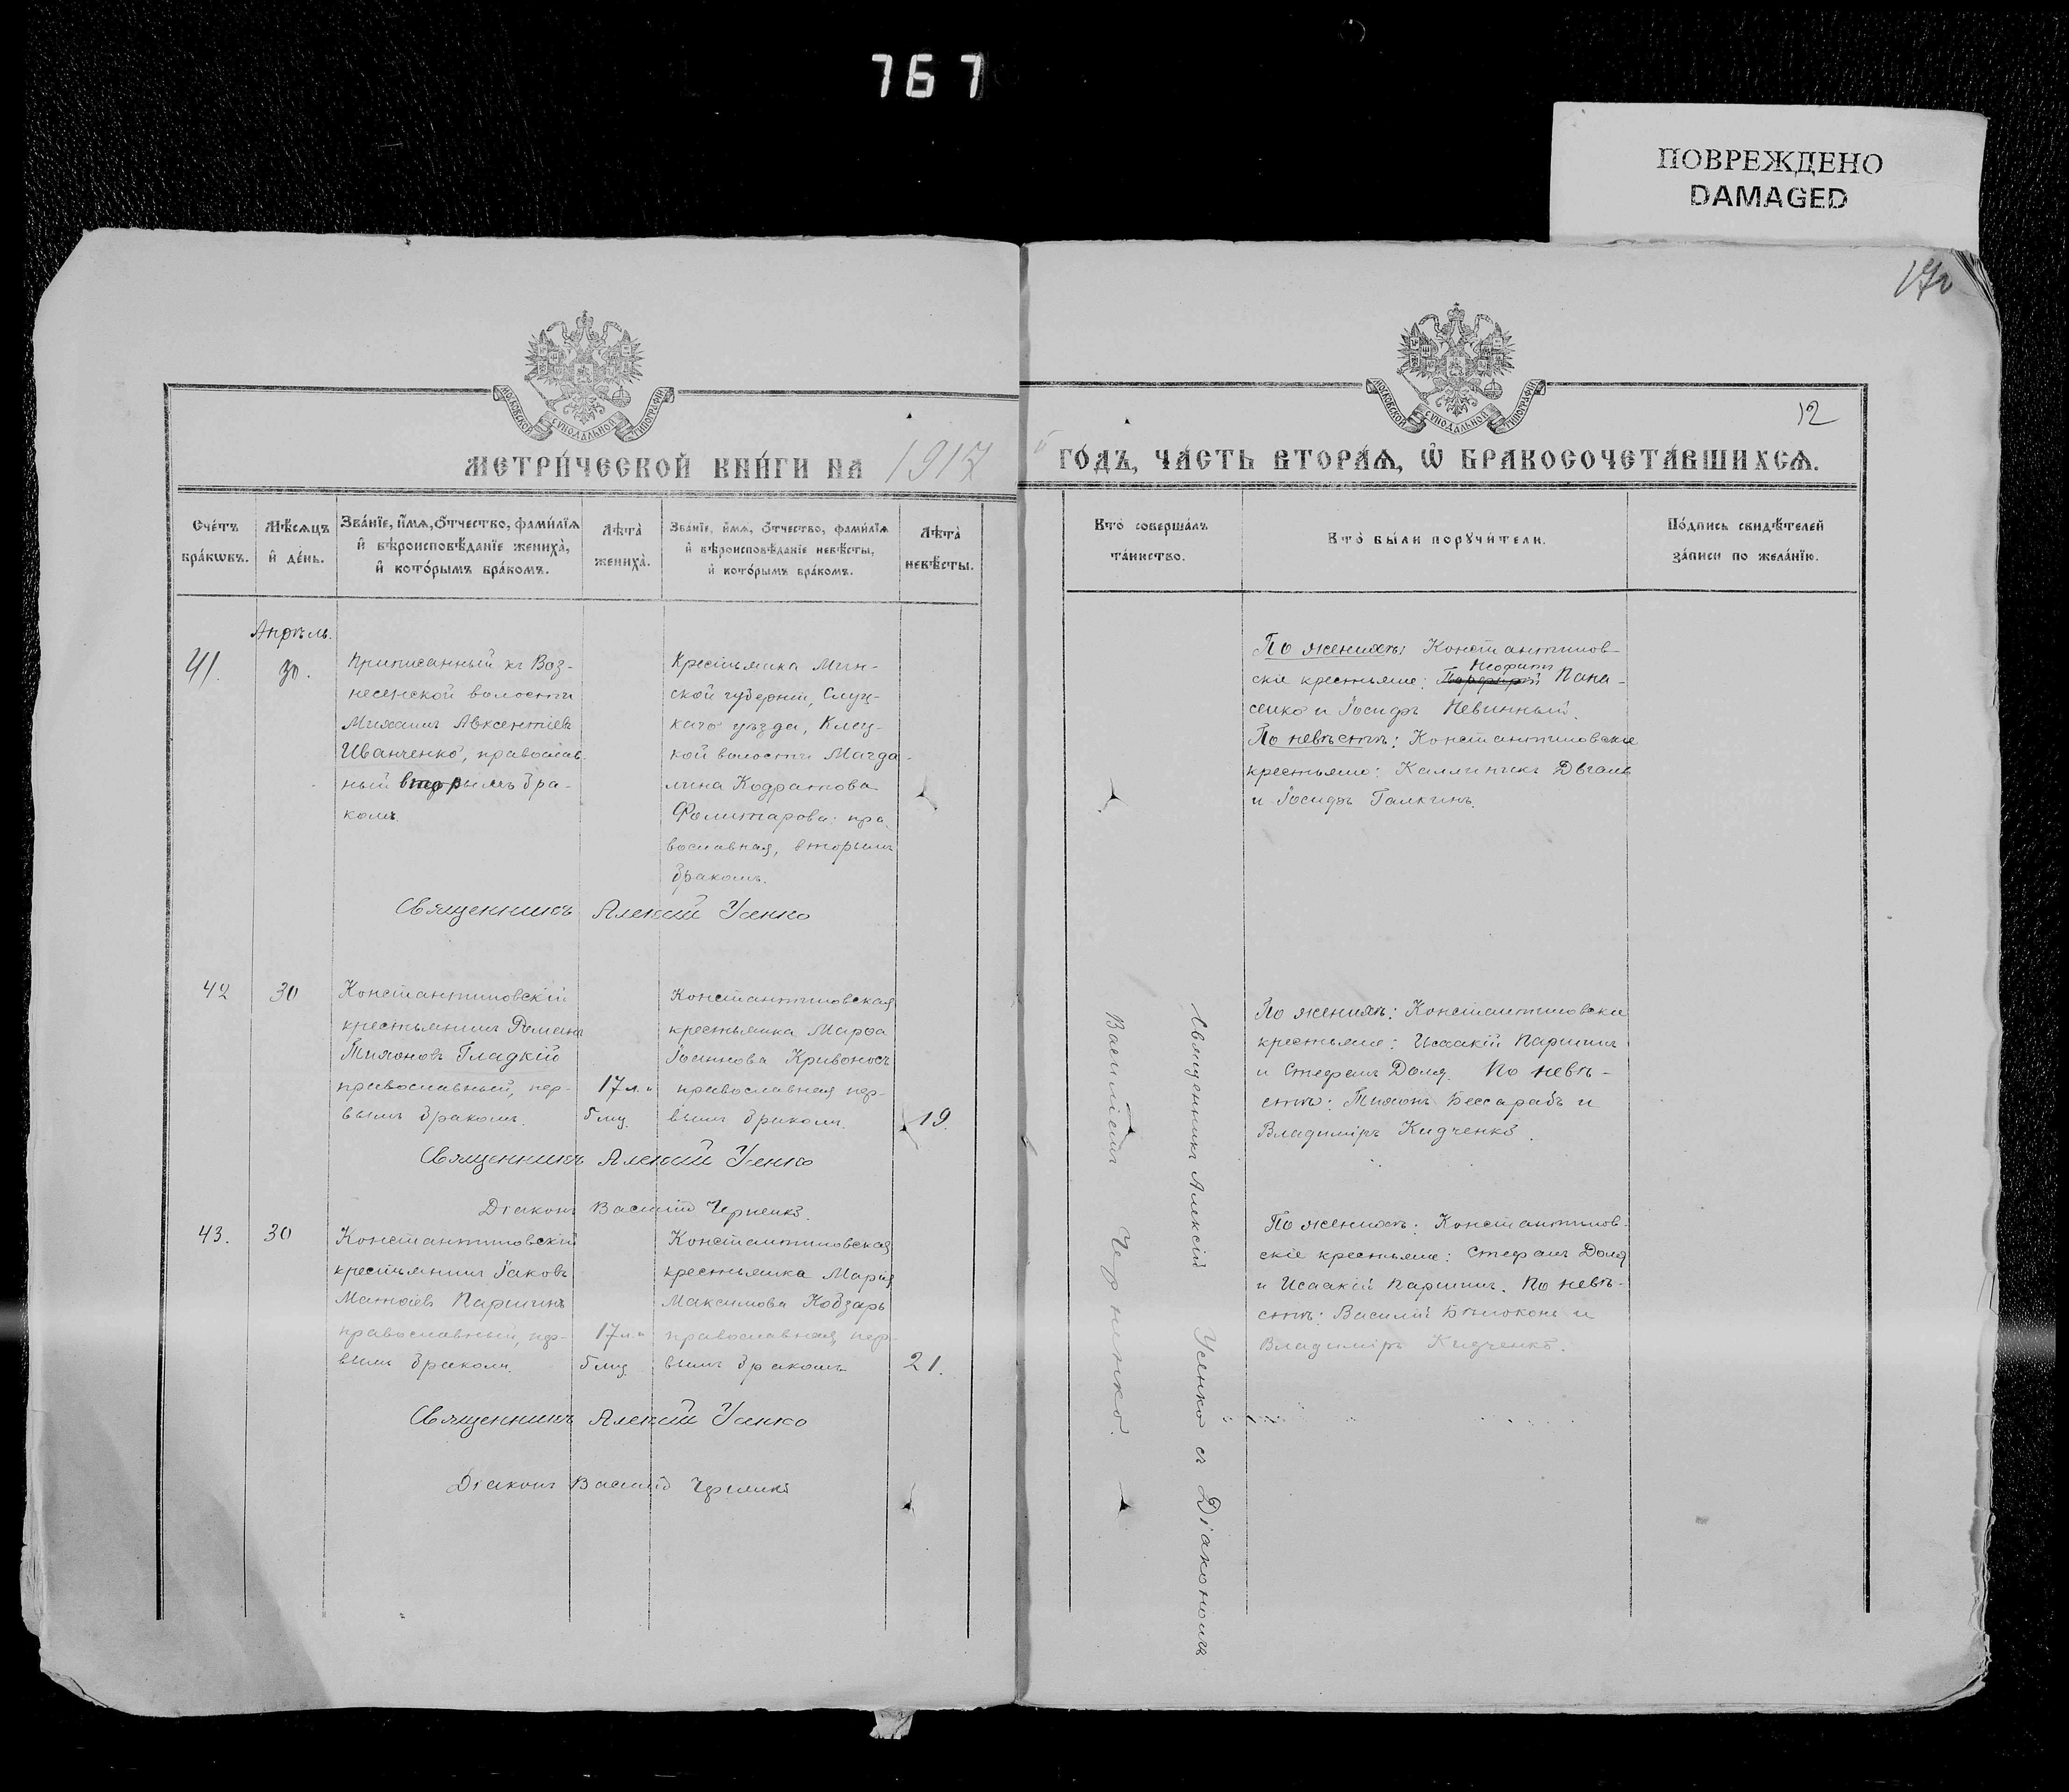 767
ПОВРЕЖДЕНО
DAMAGED
170
МОСКОВСКОЙ СѴНОДАЛЬНОЙ ТИПОГРАФІИ
МОСКОВСКОЙ СѴНОДАЛЬНОЙ ТИПОГРАФІИ
12
МЕТРИ́ЧЕСКОЙ КНИ́ГИ НА 1917
ГО́ДЪ, ЧА́СТЬ ВТОРА́Ѧ, Ѡ҆ БРАКОСОЧЕТА́ВШИХСѦ.
Сче́тъ бра́кѡвъ.
Мѣ́сѧцъ и҆ де́нь.
Зва́нїе, и҆́мѧ, ѻ҆́тчество, фами́лїѧ
и҆ вѣроисповѣ́данїе жениха̀,
и҆ кото́рымъ бра́комъ.
Лѣта̀ жениха̀.
Зва́нїе, и҆́мѧ, ѻ҆́тчество, фами́лїѧ
и҆ вѣроисповѣ́данїе невѣ́сты,
и҆ кото́рымъ бра́комъ.
Лѣта̀ невѣ́сты.
Кто̀ соверша́лъ та́инство.
Кто̀ бы́ли порꙋчи́тели.
По́дпись свидѣ́телей
за́писи по жела́нїю.
Апрѣль.
41.
30.
Приписанный къ Воз-
несенской волости
Михаилъ Авксентіевъ
Иванченко, православ-
ный вторымъ бра-
комъ
Крестьянка Мин-
ской губерніи, Слуц-
каго уѣзда, Клец-
кой волости Магда-
лина Кодратова
Фолитарова: пра-
вославная, вторымъ
бракомъ.
По женихѣ: Константинов-
Неофитъ
скіе крестьяне: Порфирій Пана-
сенко и Іосифъ Невинный.
По невѣстѣ: Константиновскіе
крестьяне: Каллиникъ Двгаль
и Іосифъ Галкинъ.
Священникъ Алексій Усенко
42
30
Константиновскій
крестьянинъ Романъ
Тихоновъ Гладкій
православный, пер-
вымъ бракомъ.
17 л. и
5 мц.
Константиновская
крестьянка Марѳа
Іоаннова Кривоносъ
православная пер-
вымъ бракомъ.
19.
По женихѣ: Константиновскіе
крестьяне: Исаакій Паршинъ
и Стефанъ Доля. По невѣ-
стѣ: Тихонъ Бессарабъ и
Владиміръ Кидченко.
Священникъ Алексій Усенко
Діаконъ Василій Черненко.
43.
30
Константиновскій
крестьянинъ Іаковъ
Матѳіевъ Паршинъ
православный, пер-
вымъ бракомъ.
17 л. и
5 мц.
Константиновская
крестьянка Марія
Максимова Кобзарь
православная, пер-
вымъ бракомъ
21.
По женихѣ: Константинов-
скіе крестьяне: Стефанъ Доля
и Исаакій Паршинъ. По невѣ-
стѣ: Василій Бѣлоконь и
Владиміръ Кидченко.
Священникъ Алексій Усенко
Діаконъ Василій Черненко
Священникъ Алексій Усенко съ Діакономъ
Василіемъ Черненко.